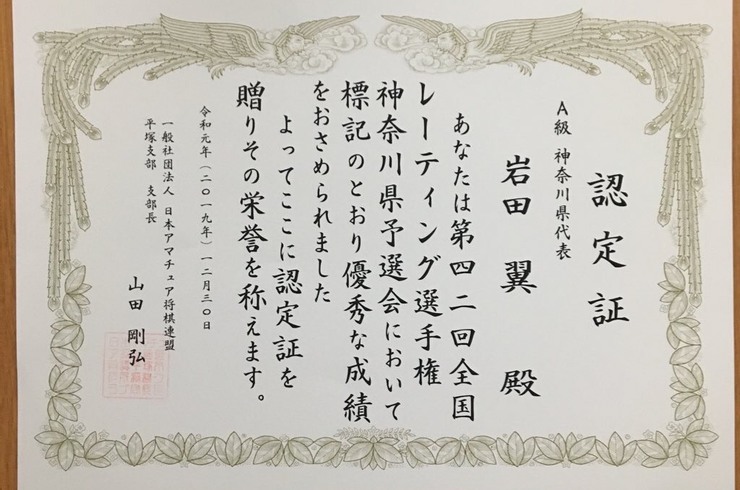 認定証
A級 神奈川県代表
岩田 翼 殿
あなたは第四二回全国
レーティング選手権
神奈川県予選会において
標記のとおり優秀な成績
をおさめられました
よってここに認定証を
贈りその栄誉を称えます。
令和元年(二〇一九年)一二月三〇日
一般社団法人 日本アマチュア将棋連盟
平塚支部 支部長
山田 剛弘